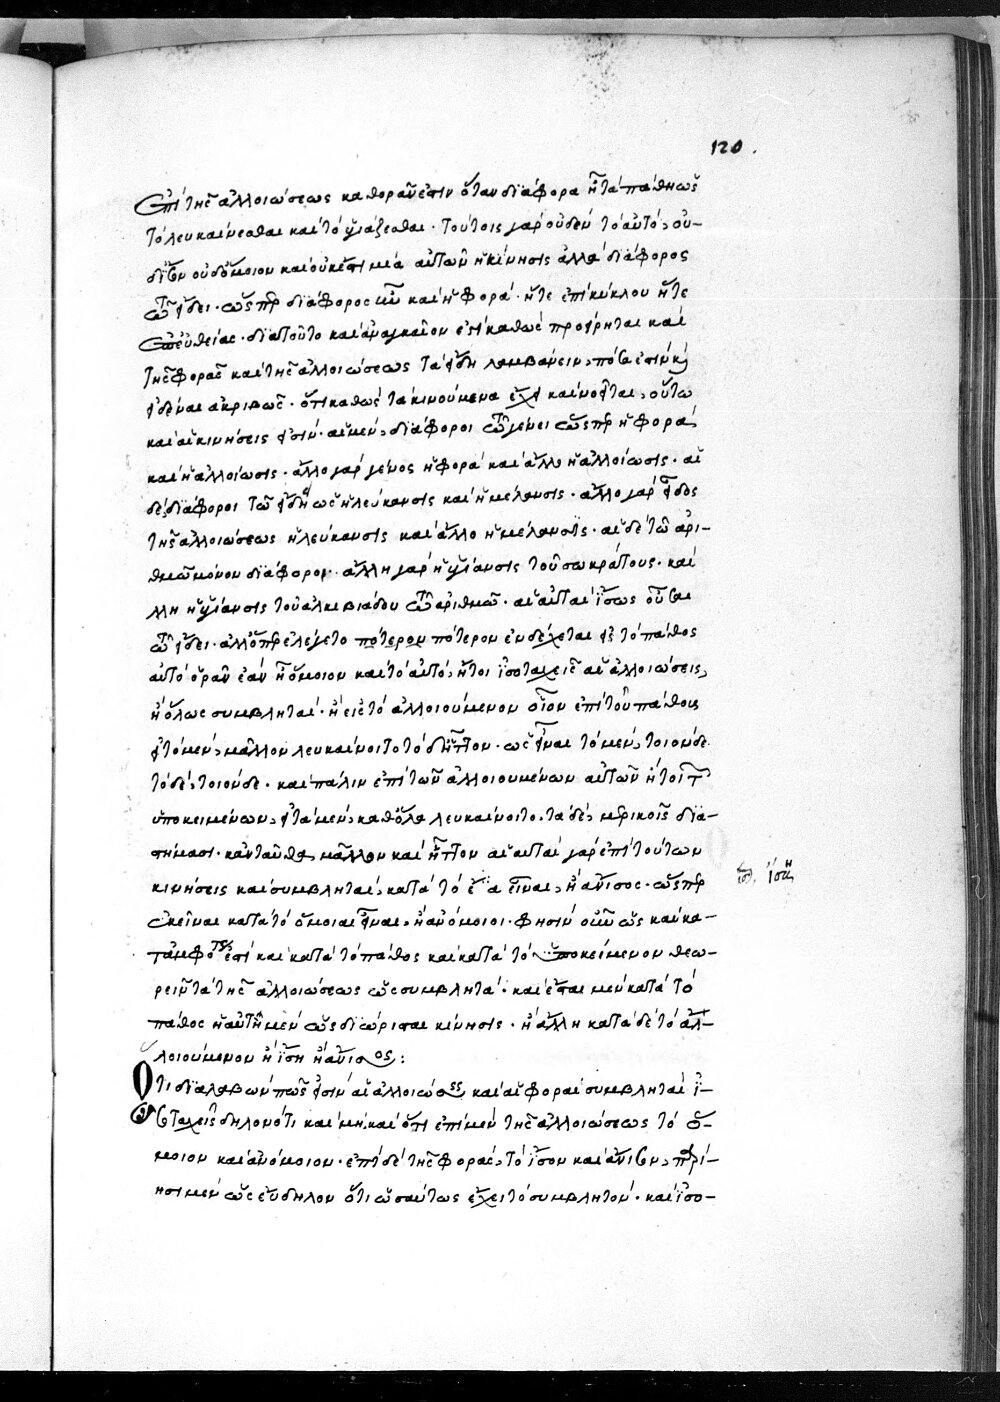 120.
ἐπὶ τῆς ἀλλοιώσεως καθορᾶν ἐστιν ὅταν διάφορα ᾖ τὰ πάθη ὡς
τὸ λευκαίνεσθαι καὶ τὸ ὑγιάζεσθαι · τούτοις γὰρ οὐδὲν τὸ αὐτὸ, οὐ-
δ' ἴσον οὐδ' ὅμοιον καὶ οὐκέτι μία αὐτῶν ἡ κίνησις ἀλλὰ διάφορος
τῷ εἴδει · ὥσπερ διάφορος ἦν καὶ ἡ φορά · ἥ τε ἐπὶ κύκλου ἥ τε
ἐπ' εὐθείας · διὰ τοῦτο καὶ ἀναγκαῖον ἐπὶ καθὼς προείρηται καὶ
τῆς φορᾶς καὶ τῆς ἀλλοιώσεως τὰ εἴδη λαμβάνειν, πόσα ἐστὶν καὶ
εἰδέναι ἀκριβῶς · ὅτι καθὼς τὰ κινούμενα ἔχει καὶ νοεῖται, οὕτω
καὶ αἱ κινήσεις εἰσίν · αἱ μὲν, διάφοροι τῷ γένει ὥσπερ ἡ φορά
καὶ ἡ ἀλλοίωσις · ἄλλο γὰρ γένος ἡ φορά καὶ ἄλλο ἡ ἀλλοίωσις · αἱ
δὲ διάφοροι τῷ εἴδει ὡς ἡ λεύκανσις καὶ ἡ μέλανσις · ἄλλο γὰρ εἶδος
τῆς ἀλλοιώσεως ἡ λεύκανσις καὶ ἄλλο ἡ μέλανσις · αἱ δὲ τῷ ἀρι-
θμῷ μόνον διάφοροι · ἄλλη γὰρ ἡ ὑγίανσις τοῦ σωκράτους · καὶ
λλη ἡ ὑγίανσις τοῦ ἀλκιβιάδου τῷ ἀριθμῷ · αἱ αὐταὶ ἴσως οὖσαι
τῷ εἴδει · ἀλλ' ὅπερ ἐλέγετο πότερον πότερον ἐνδέχεται εἰς τὸ πάθος
αὐτὸ ὁρᾶν ἐὰν ᾖ ὅμοιον καὶ τὸ αὐτὸ, ἤτοι ἰσοταχεῖς αἱ ἀλλοιώσεις,
ἢ ὅλως συμβληταί · ἢ εἰς τὸ ἀλλοιούμενον οἷον ἐπὶ τοῦ πάθους
εἰ τὸ μὲν, μᾶλλον λευκαίνοιτο τὸ δὲ ἧττον · ὡς εἶναι τὸ μὲν, τοιόνδε
τὸ δὲ, τοιόνδε · καὶ πάλιν ἐπὶ τῶν ἀλλοιουμένων αὐτῶν ἤτοι τ
ὑποκειμένων, εἰ τὰ μὲν, καθόλα λευκαίνοιτο, τὰ δὲ, μερικοῖς δια-
στήμασι · κἀνταῦθα μᾶλλον καὶ ἧττον αἱ αὐταὶ γὰρ ἐπὶ τούτων
κινήσεις καὶ συμβληταὶ, κατὰ τὸ ἴσα εἶναι, ἢ ἄνισος · ὥσπερ
ἐκεῖναι κατὰ τὸ ὅμοιαι εἶναι, ἢ ἀνόμοιοι · φησὶν οὖν ὡς καὶ κα-
τ' ἀμφότερ ἐστὶ καὶ κατὰ τὸ πάθος καὶ κατὰ τὸ ὑποκείμενον θεω-
ρεῖν τὰ τῆς ἀλλοιώσεως ὡς συμβλητά · καὶ ἔσται μὲν κατὰ τὸ
πάθος ἡ αὐτὴ μὲν ὡς διώρισται κίνησις · ἢ ἄλλη κατὰ δὲ τὸ ἀλ-
λοιούμενον ἢ ἴση ἢ ἄνισος :
Ὅτι διαλαβὼν πῶς εἰσὶν αἱ ἀλλοιώσεις καὶ αἱ φοραὶ συμβληταὶ ἰ-
σοταχεῖς δηλονότι καὶ μὴ, καὶ ὅτι ἐπὶ μὲν τῆς ἀλλοιώσεως τὸ ὅ-
μοιον καὶ ἀνόμοιον · ἐπὶ δὲ τῆς φορᾶς, τὸ ἴσον καὶ ἄνισον,
ησι μὲν ὡς εὔδηλον ὅτι ὡσαύτως ἔχει τὸ συμβλητόν · καὶ ἰσο-